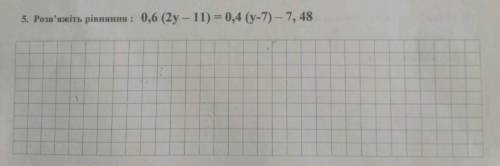 5. Розв'яжіть рівняння : 0,6 (2у – 11) = 0,4 (у-7) – 7, 48